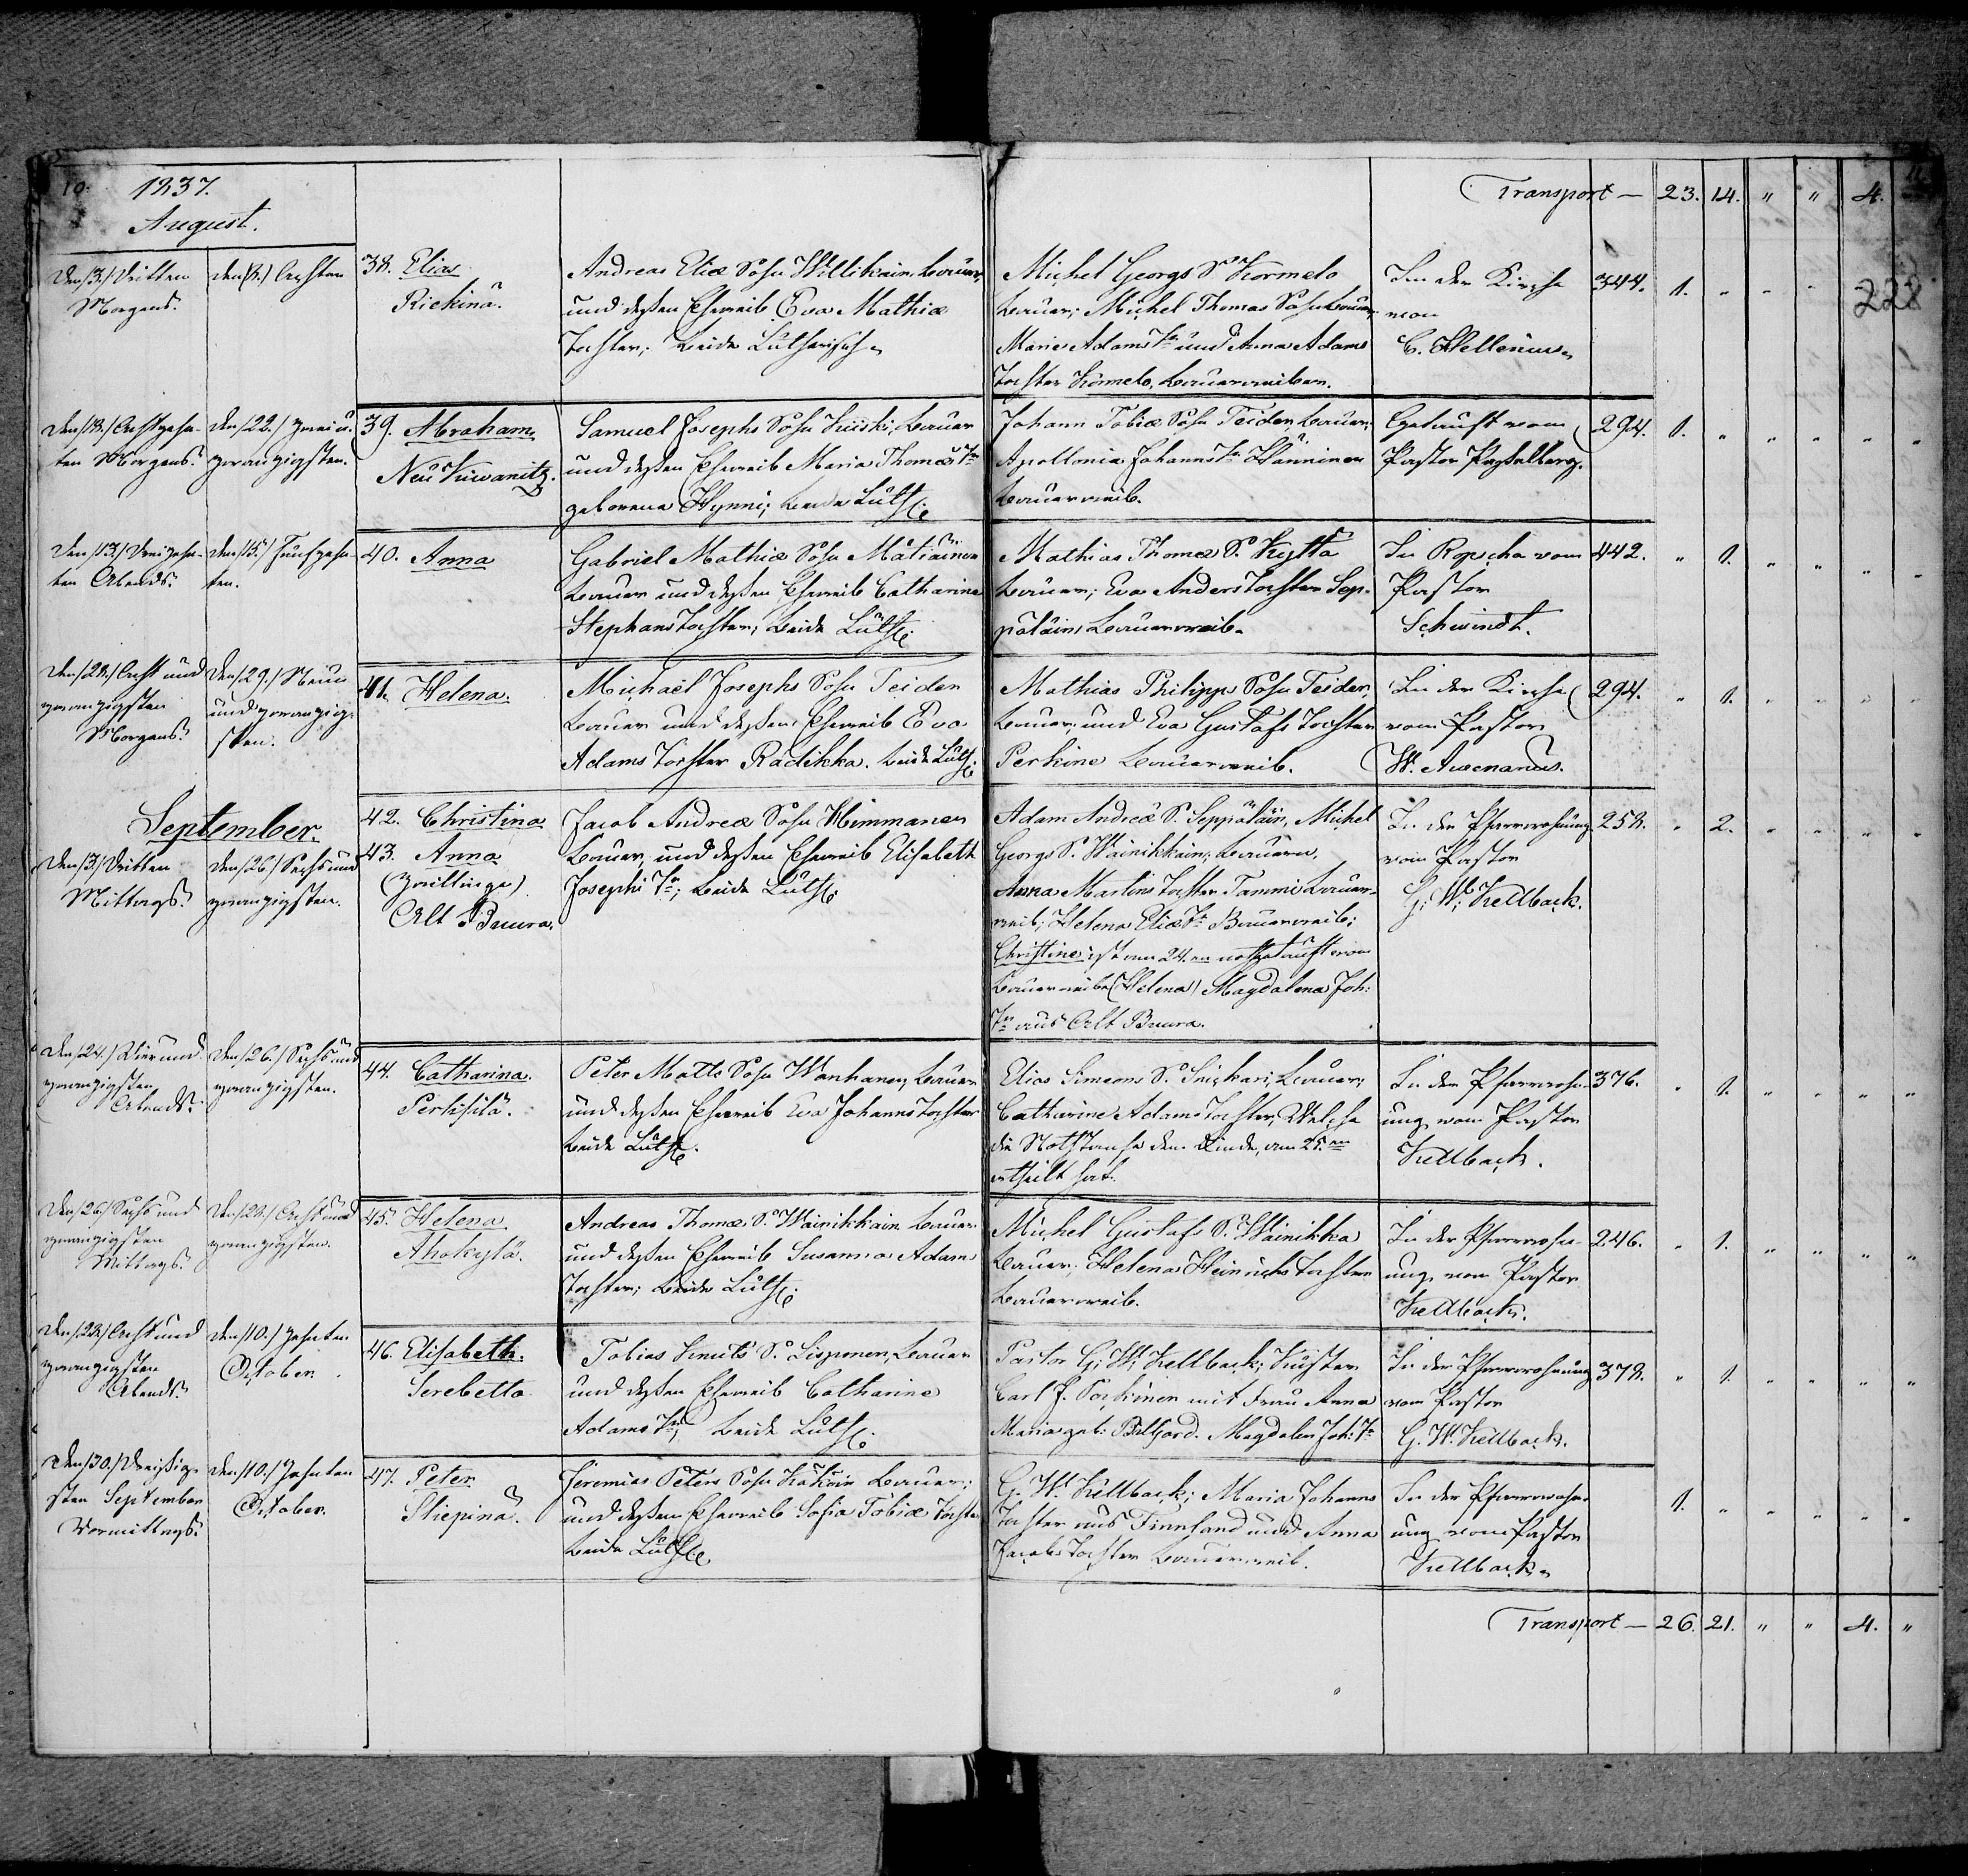 10.
1837.
August.
Transport — 23. 14. " " 4.
228
Den /3./ Dritten
Morgens.
den /8./ Achten
38. Elias
Rickina.
Andreas Eliæ Sohn Willikain, Bauer,
und deßen Eheweib Eva Mathiæ
Tochter; beide Lutherisch.
Michel Georgs S. Kormelo
Bauer; Michel Thomas Sohn Bauer,
Maria Adams Tr und Anna Adams
Tochter Kormelo, Bauerweiber.
In der Kirche
von
C. Hellenius.
344. 1.
Den /18./ Achtzehn-
ten Morgens.
den /22./ zwei u.
zwanzigsten.
39. Abraham
Neu Kuwanitz.
Samuel Josephs Sohn Kuiski, Bauer
und deßen Eheweib Maria Thomæ Tr
geborene Hynni; beide Luth.
Johann Tobiæ Sohn Teider, Bauer;
Apollonia Johanns Tr Hänninen
Bauerweib.
Getauft vom
Pastor
294. 1.
Den /13./ Dreizehn-
ten Abends.
den /15./ Fünfzehn-
ten.
40. Anna
Gabriel Mathiæ Sohn Mätiäinen
Bauer und deßen Eheweib Catharina
Stephans Tochter; beide Luth.
Mathias Thomæ S. Kyttä
Bauer; Eva Anders Tochter Sep-
päläin, Bauerweib.
In Ropscha vom
Pastor
Schwindt.
442. " 1.
Den /28./ Acht und
zwanzigsten
Morgens.
den /29./ Neun
und zwanzig-
sten.
41. Helena.
Michaël Josephs Sohn Teider
Bauer und deßen Eheweib Eva
Adams Tochter Rädikka. beide Luth.
Mathias Philipps Sohn Teider,
Bauer; und Eva Gustafs Tochter
Perkine Bauerweib.
In der Kirche
vom Pastor
W. Avenarius.
294. " 1.
September.
Den /3./ Dritten
Mittags.
den /26./ Sechs und
zwanzigsten.
42. Christina
43. Anna
(Zwillinge)
Alt Buura.
Jacob Andreæ Sohn Himmanen
Bauer, und deßen Eheweib Elisabeth
Josephs Tr; beide Luth.
Adam Andreä S. Seppäläin, Michel
Georgs S. Wainikkain; Bauern.
Anna Martins Tochter Tammi Bauer-
weib; Helena Eliæ Tr Bauerweib;
Christine ist am 24.en nothgetauft vom
Bauerweibe (Helena) Magdalena Joh:
Tr aus Alt Buura.
In der Pfarrwohnung
vom Pastor
G. W. Kellback.
258. " 2.
Den /24./ Vier und
zwanzigsten
Abends.
den /26./ Sechs und
zwanzigsten.
44. Catharina.
Peter Matts Sohn Wanhanen, Bauer
und deßen Eheweib Eva Johanns Tochter
beide Luth.
Elias Simeons S. Bauer;
Catharine Adams Tochter, Welche
die Nothtaufe dem Kinde, am 25.en
ertheilt hat.
In der Pfarrwohn-
ung vom Pastor
Kellback.
376. " 1.
Den /26./ Sechs und
zwanzigsten
Mittags.
den /28./ Acht und
zwanzigsten.
45. Helena
Ahokylä.
Andreas Thomæ S. Wainikkain Bauer
und deßen Eheweib Susanna Adams
Tochter; beide Luth.
Michel Gustafs S. Wainikka
Bauer; Helena Heinrichs Tochter
Bauerweib.
In der Pfarrwohn-
ung vom Pastor
Kellback.
246. " 1.
Den /28./ Acht und
zwanzigsten
Abends.
den /10./ Zehnten
October.
46. Elisabeth.
Serebetta
Tobias Knuts S. Lisponen, Bauer
und deßen Eheweib Catharine
Adams Tr; beide Luth.
Pastor G. W. Kellback; Küster
Carl J. mit Frau Anna
Maria geb: Magdalen Joh: Tr
In der Pfarrwohnung
vom Pastor
G. W. Kellback.
378. " 1.
Den /30./ Dreißig-
sten September
Vormittags.
den /10./ Zehnten
October.
47. Peter
Skiepina.
Jeremias Peters Sohn Kokoin Bauer;
und deßen Eheweib Sofia Tobiæ Tochter
beide Luth.
G. W. Kellback; Maria Johanns
Tochter aus Finnland und Anna
Jacobs Tochter Bauerweib.
In der Pfarrwohn-
ung vom Pastor
Kellback.
1.
Transport — 26. 21. " " 4. "